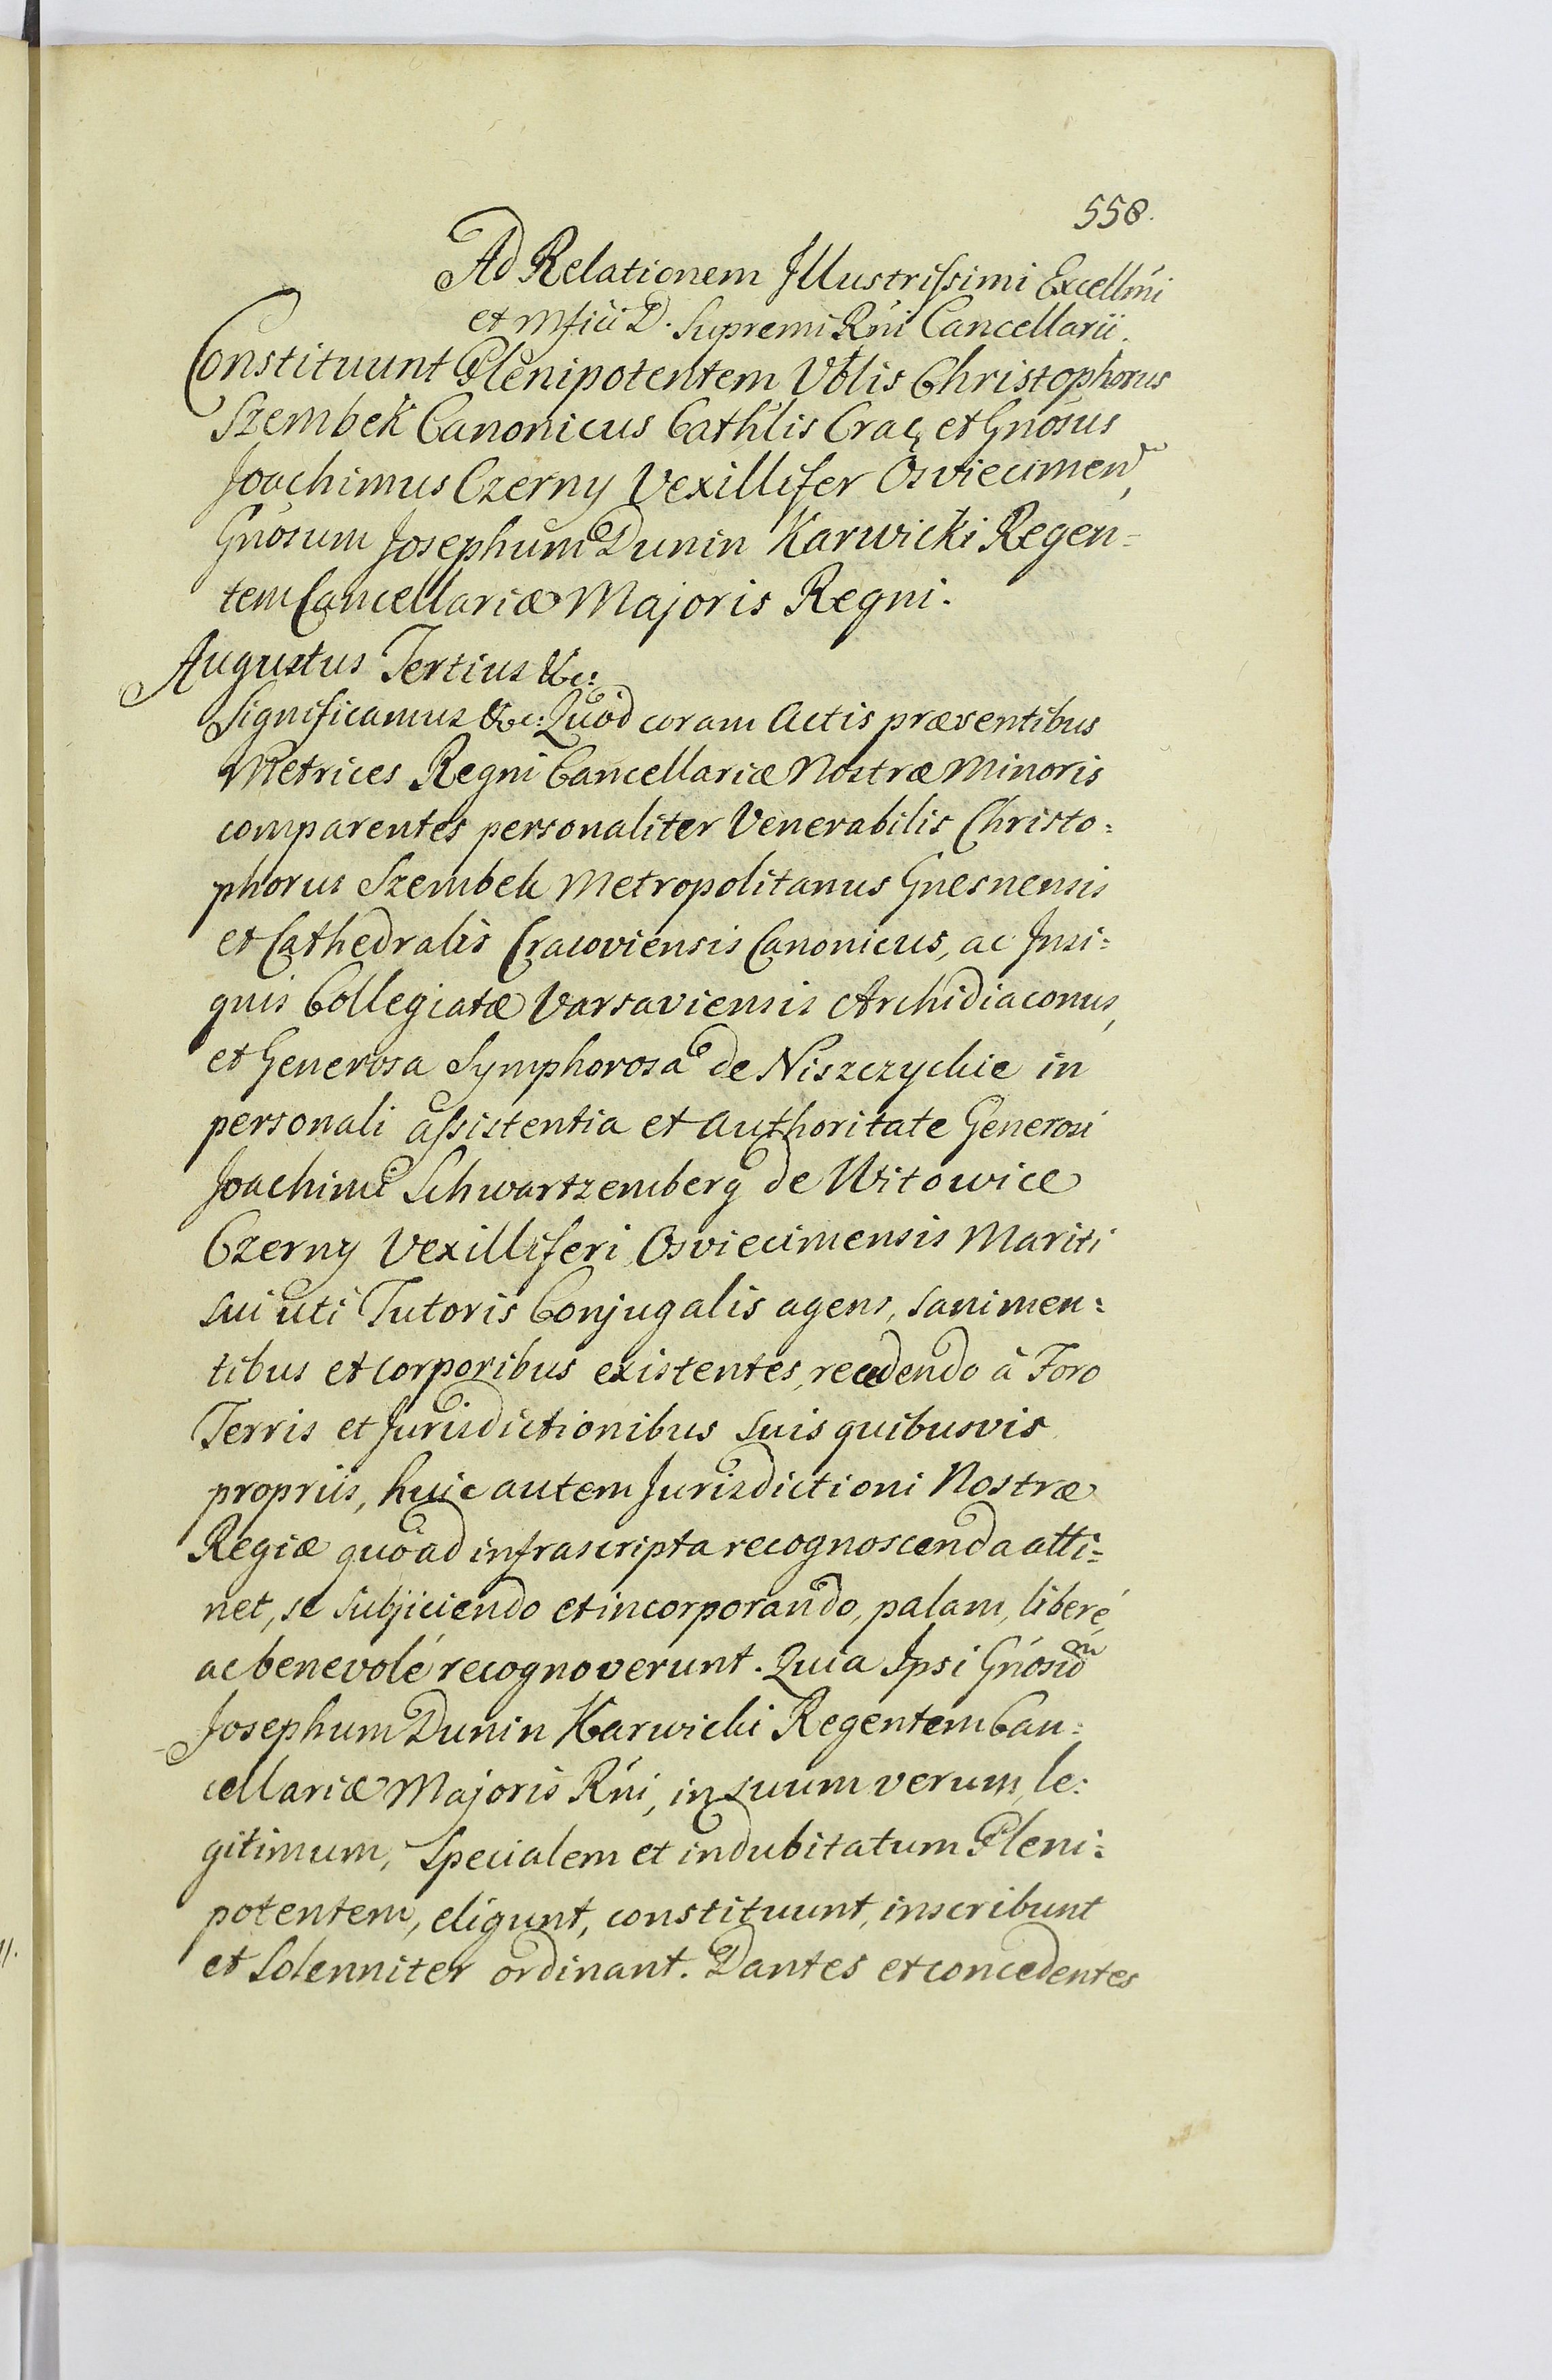 558.
Ad Relationem Illustrissimi Excellmi
et Mfici D. Supremi Rni Cancellarii.
Constituunt Plenipotentem Vblis Christophorus
Szembek Canonicus Cathlis Crac, et Gnosus
Joachimus Czerny Vexillifer Osviecimen,
Gnosum Josephum Dunin Karwicki Regen=
tem Cancellariæ Majoris Regni.
Augustus Tertius &c:
Significamus &c: Quod coram Actis præsentibus
Metrices Regni Cancellariæ Nostræ Minoris
comparentes personaliter Venerabilis Christo=
phorus Szembek Metropolitanus Gnesnensis
et Cathedralis Cracoviensis Canonicus, ac Insi=
gnis Collegiatæ Varsaviensis Archidiaconus,
et Generosa Symphorosa de Niszczyckie in
personali assistentia et authoritate Generosi
Joachimi Schwartzemberg de Witowice
Czerny Vexilliferi Osviecimensis Mariti
sui uti Tutoris Conjugalis agens, sani men=
tibus et corporibus existentes, recedendo à Foro
Terris et Jurisdictionibus suis quibusvis
propriis, huic autem Jurisdictioni Nostræ
Regiæ quòad infrascripta recognoscenda atti=
net, se subjiciendo et incorporando, palam, liberé,
ac benevolé recognoverunt. Quia Ipsi Gnosum
Josephum Dunin Karwicki Regentem Can=
cellariæ Majoris Rni, in suum verum, le=
gitimum, Specialem et indubitatum Pleni=
potentem, eligunt, constituunt, inscribunt
et Solenniter ordinant. Dantes et concedentes